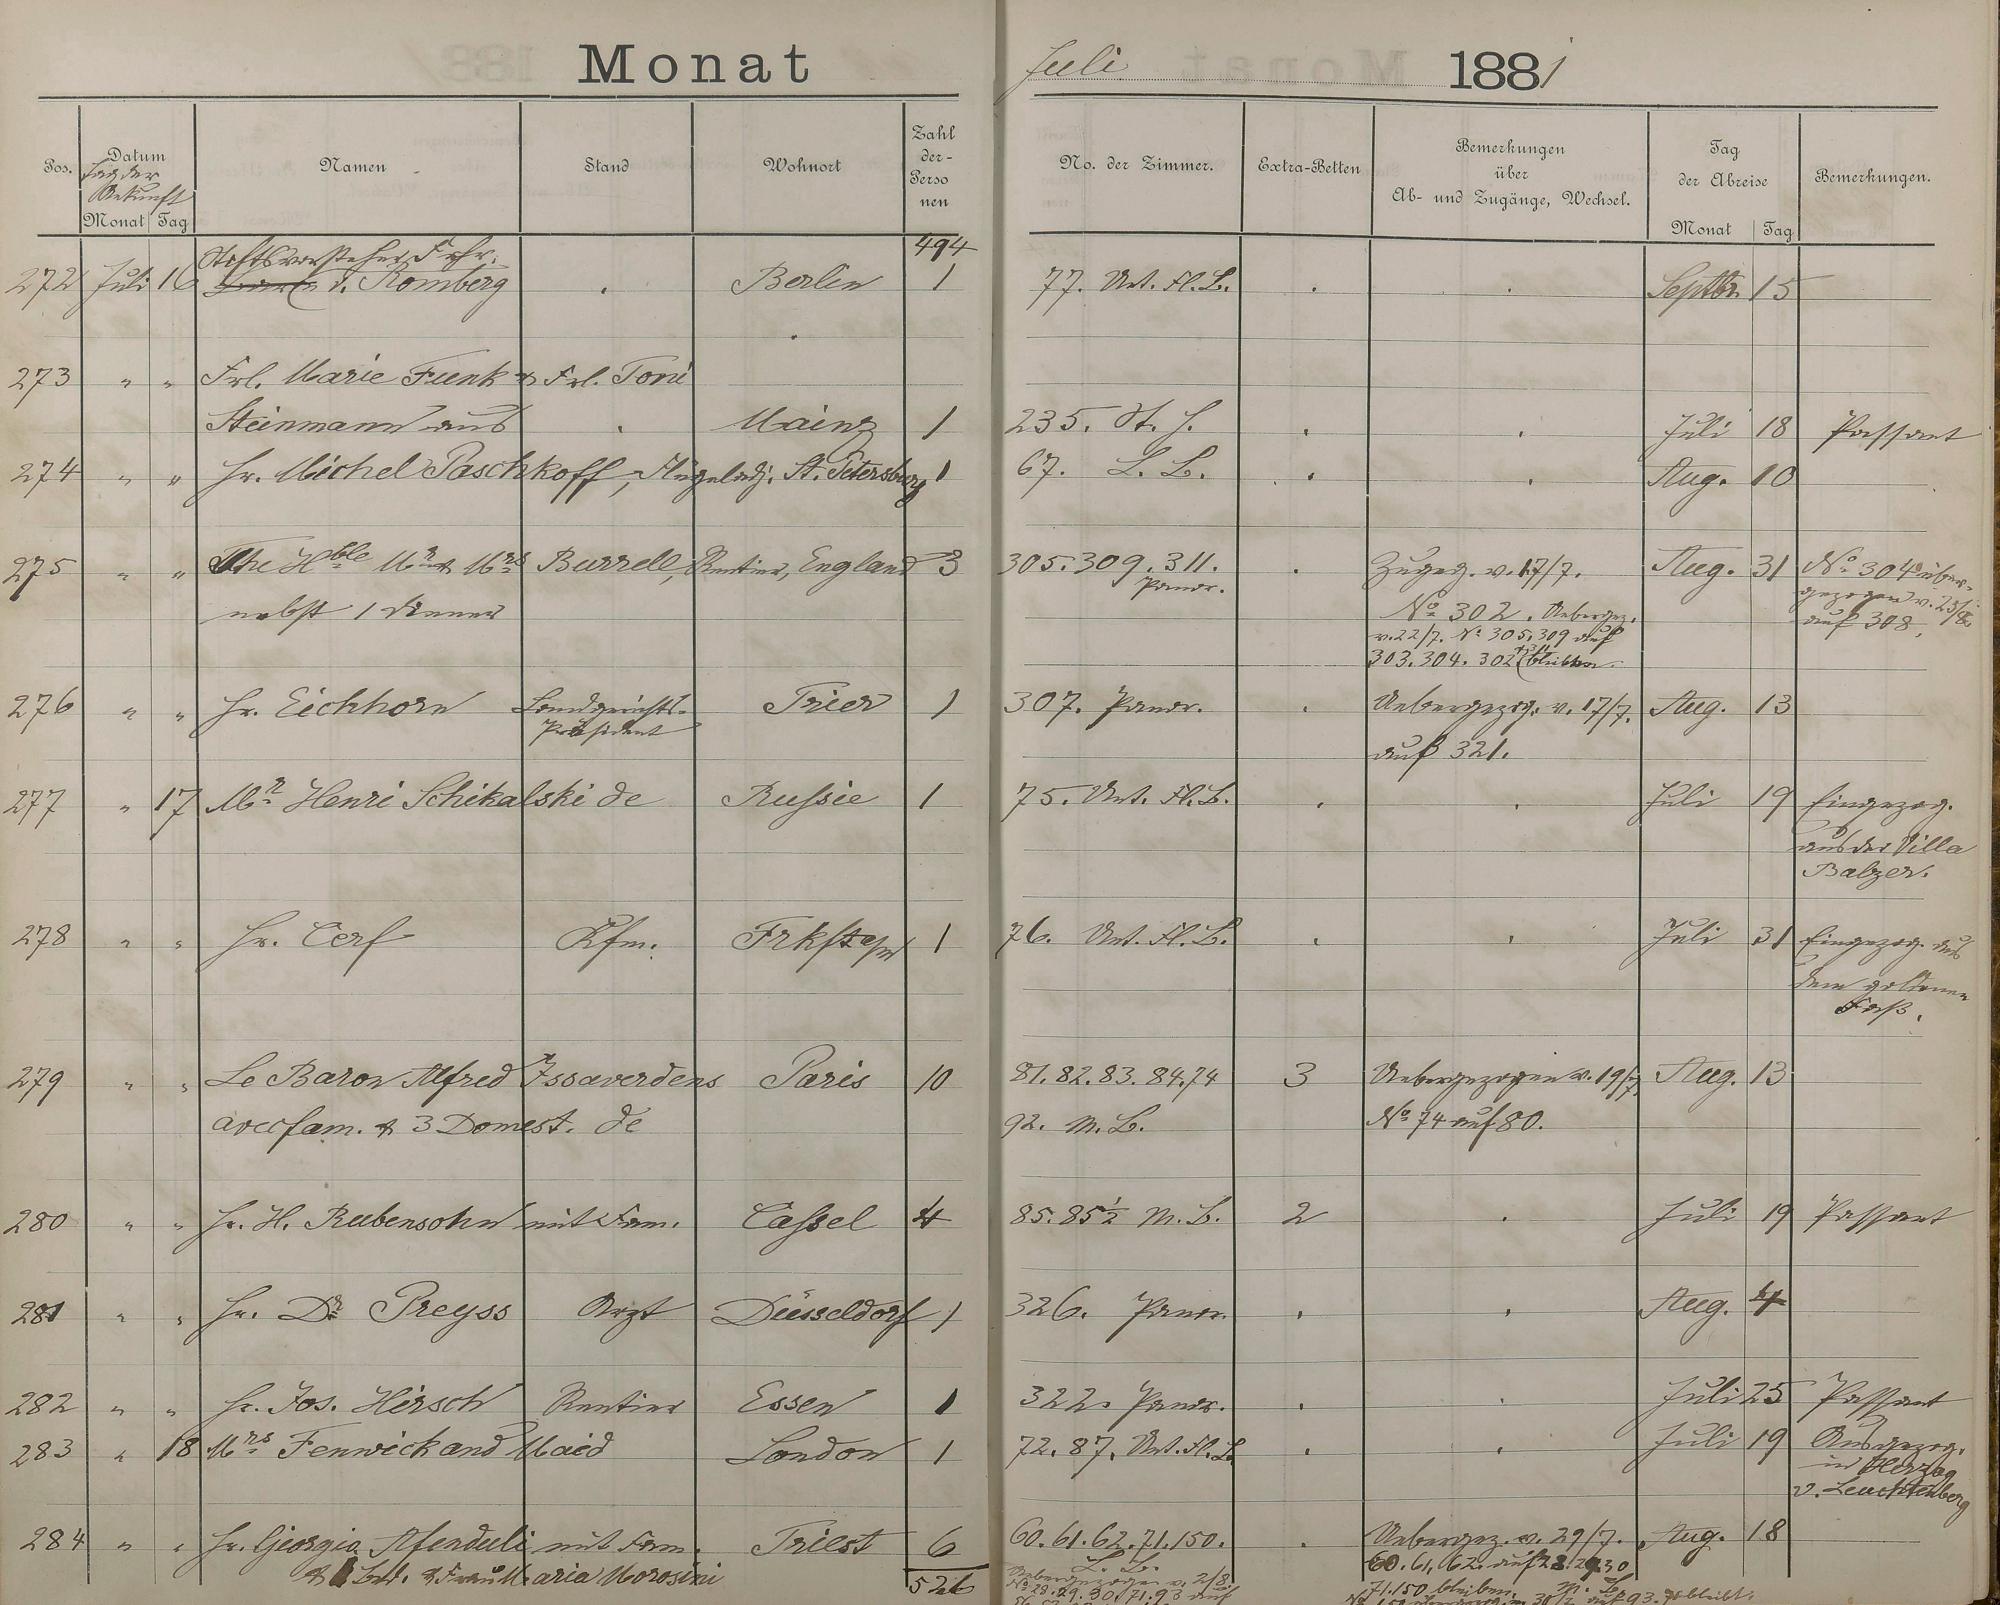 Monat Juli 1881
Pos. Datum Namen Stand Wohnort Zahl der- Perso nen No. der Zimmer. Extra-Betten Bemerkungen über Ab- und Zugänge, Wechsel. Tag der Abreise Bemerkungen.
Tag der Ankunft
Monat Tag Monat Tag
494
Stiftsvorsteher Frhr.
272 Juli 16 v. Romberg Berlin 1 77. Unt. Fl. B. Septbr. 15
273 " " Frl. Marie Funk & Frl. Toni
Steinmann aus Mainz 1 235. Juli 18 Passant
274 " " Hr. Michel Paschkoff, Flügeladj. St. Petersburg 1 67. L. B. Aug. 10
275 " " The Hble Mr & Mrs Burrell, Rentier, England 3 305. 309. 311. Zugeg. v. 17/7. Aug. 31 No 304 überge-
Panor. gezogen v. 25/8
nebst 1 Diener No 302. Uebergez. auf 308.
v. 22/7. No 305. 309 auf
303. 304. 302 bleiben.
276 " " Hr. Eichhorn Landgerichts- Trier 1 307. Panor. Uebergezog. v. 17/7. Aug. 13
Präsident
auf 321.
277 " 17 Mr Henri Schikalski de Russie 1 75. Unt. Fl. B. Juli 19 Eingezog.
aus der Villa
Balzer.
278 " " Hr. Cerf Kfm. Frkft a/m 1 76. Unt. Fl. B. Juli 31 Eingezog. aus
dem goldenen
Faß.
279 " " Le Baron Alfred Issaverdens Paris 10 81. 82. 83. 84. 74 3 Uebergezogen v. 19/7. Aug. 13
avec fam. & 3 Domest. de 92. M. B. No 74 auf 80.
280 " " Hr. H. Rubensohn mit Fam. Cassel 4 85. 85½ M. B. 2 Juli 19 Passant
281 " " Hr. Dr Preyss Arzt Düsseldorf 1 326. Panor. Aug. 4
282 " " Hr. Jos. Hirsch Rentier Essen 1 322. Panor. Juli 25 Passant
283 " 18 Mrs Fenwick and Maid London 1 72. 87. Unt. Fl. B. Juli 19 Ausgezog.
in Herzog
v. Leuchtenberg
284 " " Hr. Georgio Afenduli mit Fam. Triest 6 60. 61. 62. 71. 150. Uebergez. v. 29/7. Aug. 18
& 1 Bed. & Frau Maria Morosini L. B. 60. 61. 62. auf 28. 29. 30
526 Uebergezogen v. 2/8. 71. 150 bleiben. M. B.
No 28. 29. 30. 71. 93 auf auf 93. bleibt.